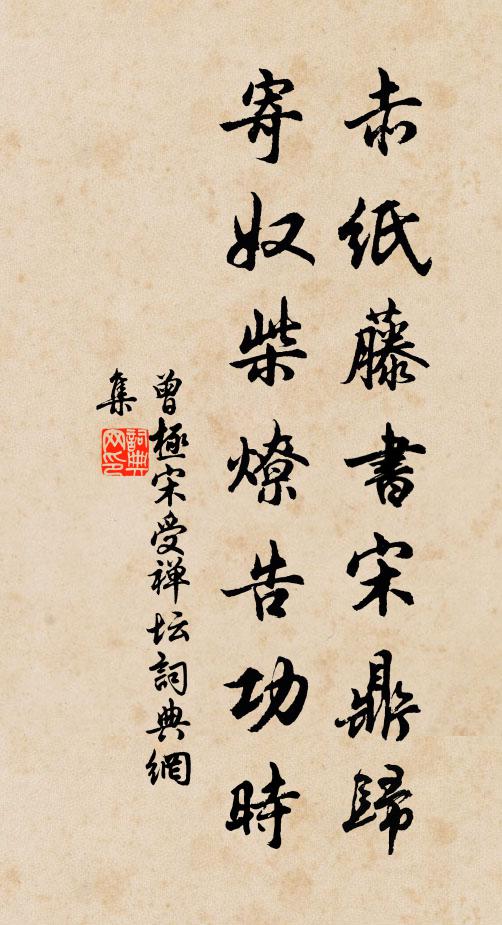 赤紙藤書宋鼎歸
寄奴柴燎告功時
曾極宋受禅坛詞典網
集
詞典
网印